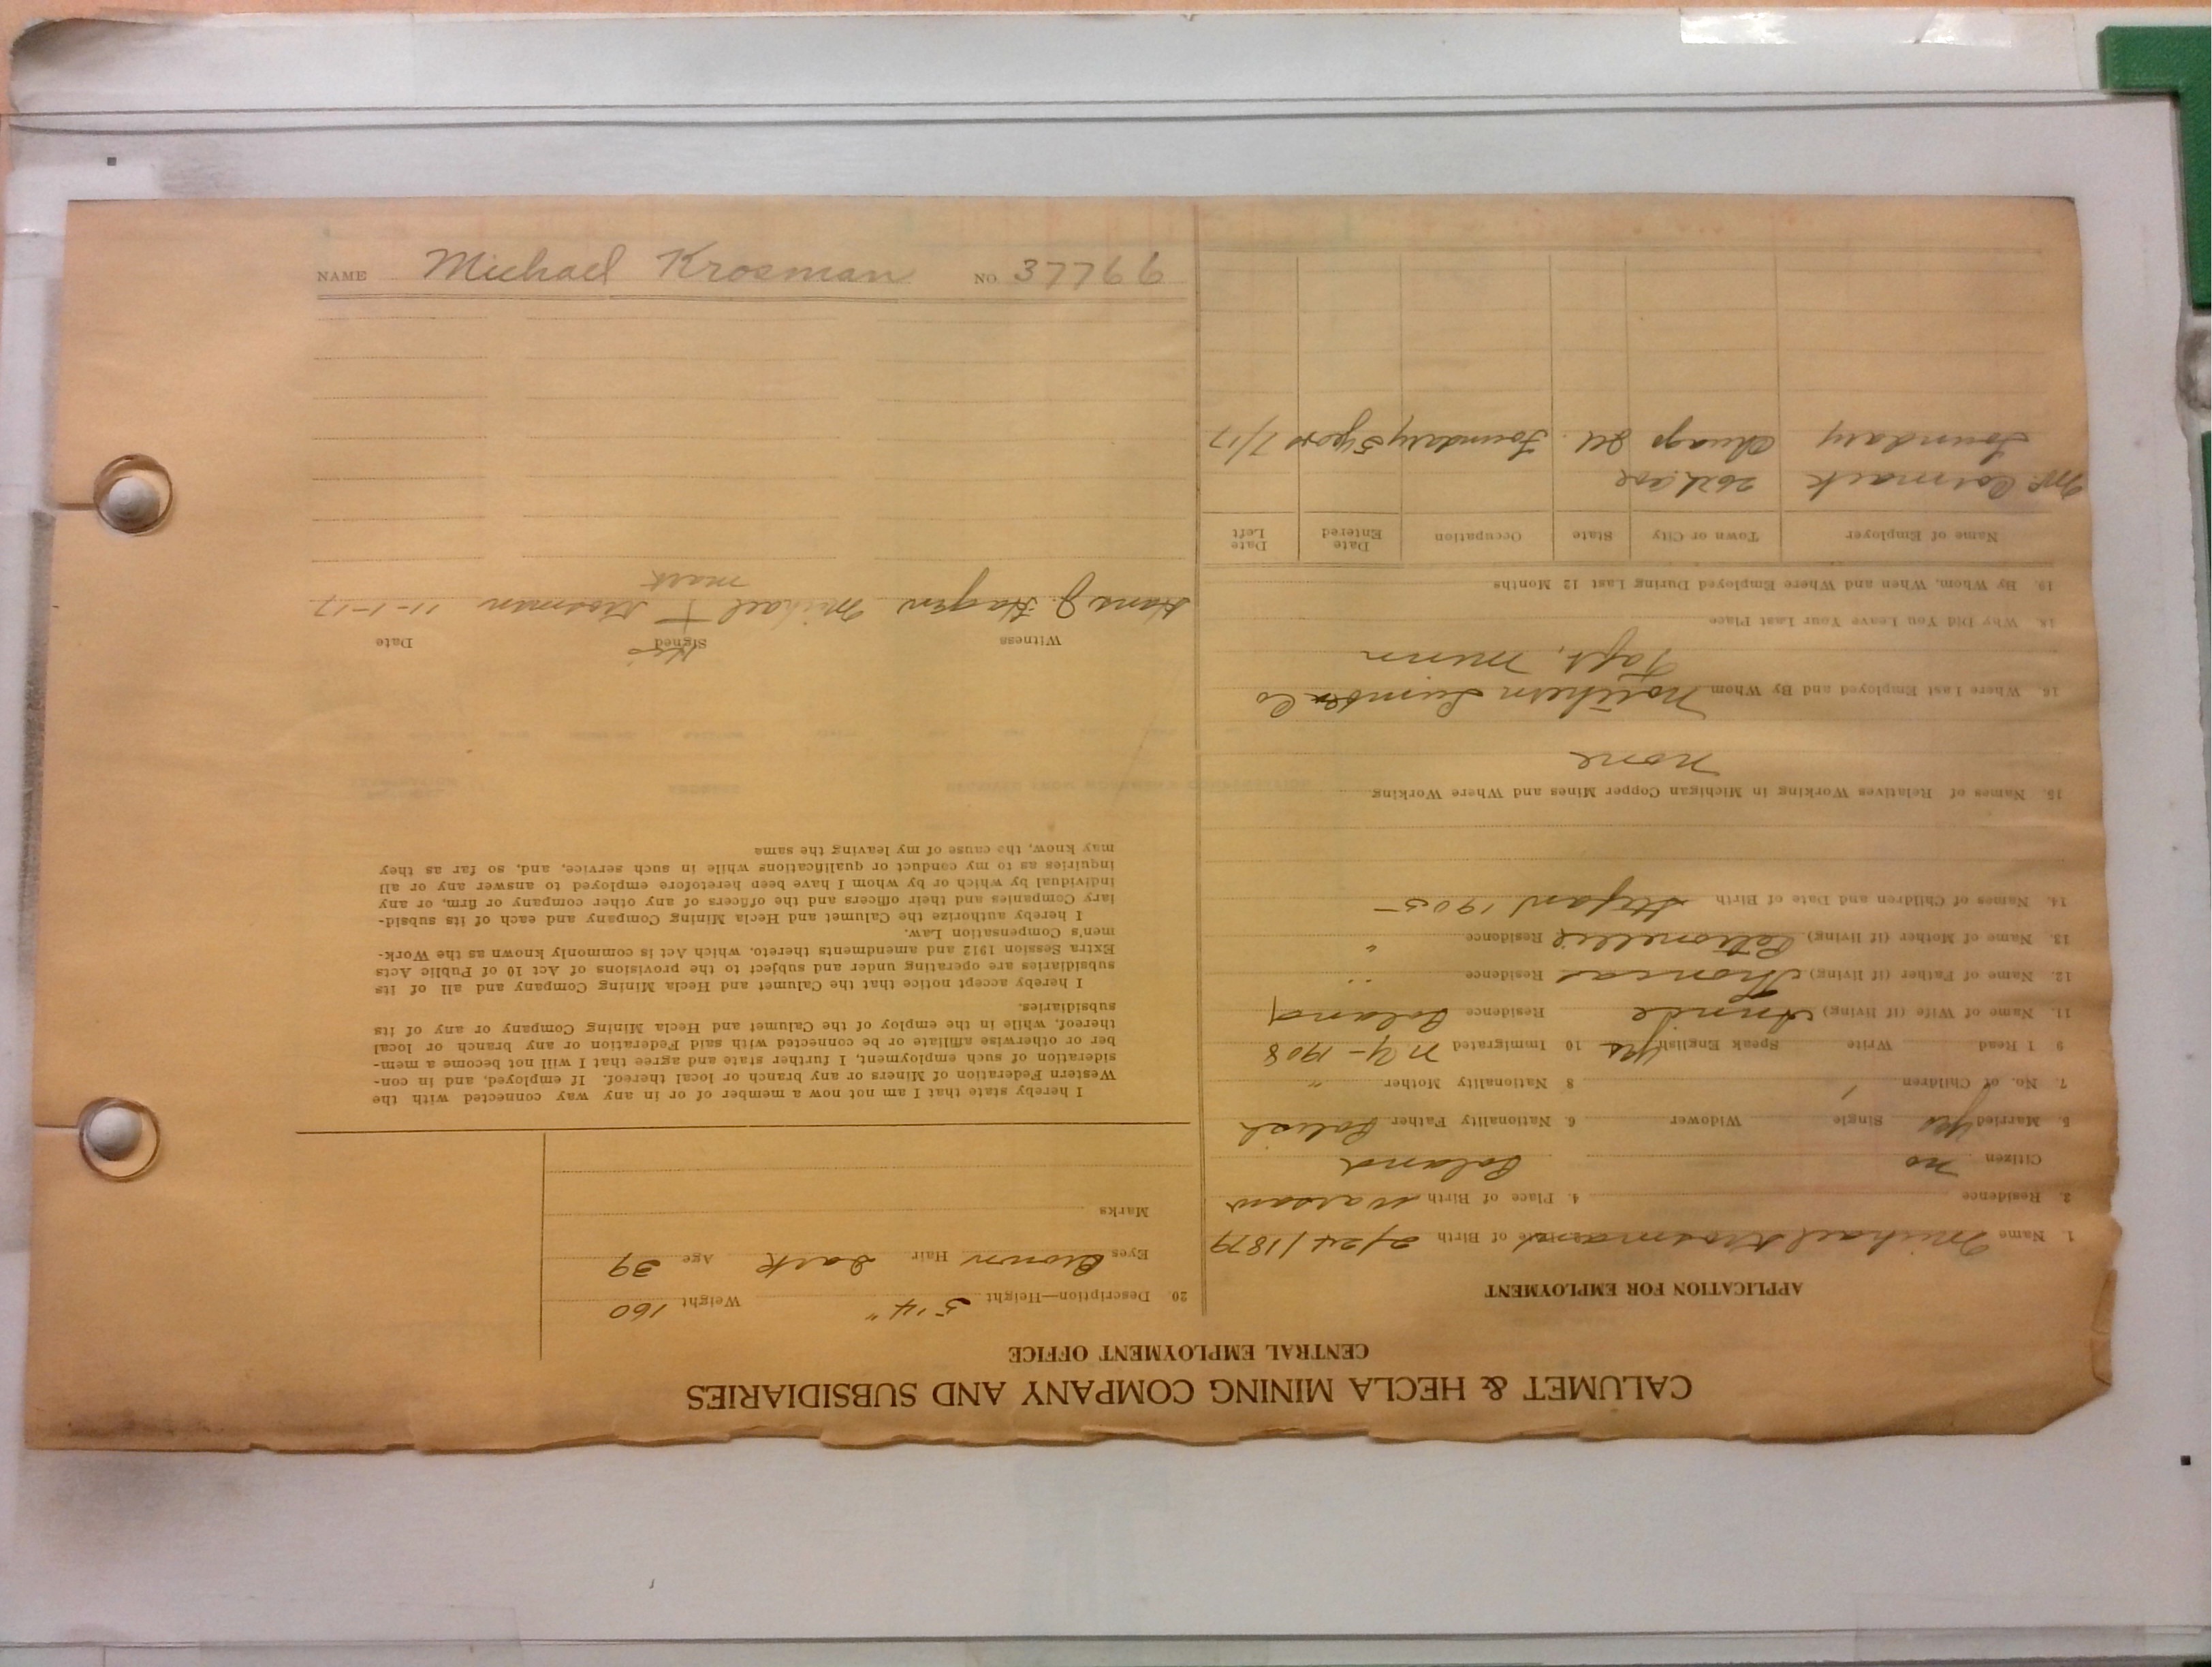 CALUMET & HECLA MINING COMPANY AND SUBSIDIARIES
CENTRAL EMPLOYMENT OFFICE
APPLICATION FOR EMPLOYMENT
1. Name Michael Krosman of Birth 2/24/1879
2. Residence 4. Place of Birth Warsaw
Citizen no Poland
5. Married yes Single Widower 6. Nationality Father Polish
7. No. of Children 1 8 Nationality Mother "
9 I Read Write Speak English yes 10 Immigrated NY-1908
11. Name of Wife (if living) Annie Residence Poland
12. Name of Father (if living) Thomas Residence "
13. Name of Mother (if living) Residence "
14. Names of Children and Date of Birth Stefan 1905-
15. Names of Relatives Working in Michigan Copper Mines and Where Working
none
16. Where Last Employed and By Whom Northern Lumber Co
Taft, Minn
18. Why Did You Leave Your Last Place
19. By Whom, When and Where Employed During Last 12 Months
Name of Employer Town or City State Occupation Date Entered Date Left
Mc Cormack 26th
Foundary Chicago Ill. Foundary 5 years 7/17
20 Description—Height 5'4" Weight 160
Eyes Brown Hair Dark Age 39
Marks
I hereby state that I am not now a member of or in any way connected with the
Western Federation of Miners or any branch or local thereof. If employed, and in con-
sideration of such employment, I further state and agree that I will not become a mem-
ber or otherwise affiliate or be connected with said Federation or any branch or local
thereof, while in the employ of the Calumet and Hecla Mining Company or any of its
subsidiaries.
I hereby accept notice that the Calumet and Hecla Mining Company and all of its
subsidiaries are operating under and subject to the provisions of Act 10 of Public Acts
Extra Session 1912 and amendments thereto, which Act is commonly known as the Work-
men's Compensation Law.
I hereby authorize the Calumet and Hecla Mining Company and each of its subsid-
iary Companies and their officers and the officers of any other company or firm, or any
individual by which or by whom I have been heretofore employed to answer any or all
inquiries as to my conduct or qualifications while in such service, and, so far as they
may know, the cause of my leaving the same
Witness Signed Date
his
Hans J. Hagen Michael + Krosman 11-1-17
mark
NAME Michael Krosman NO 37766